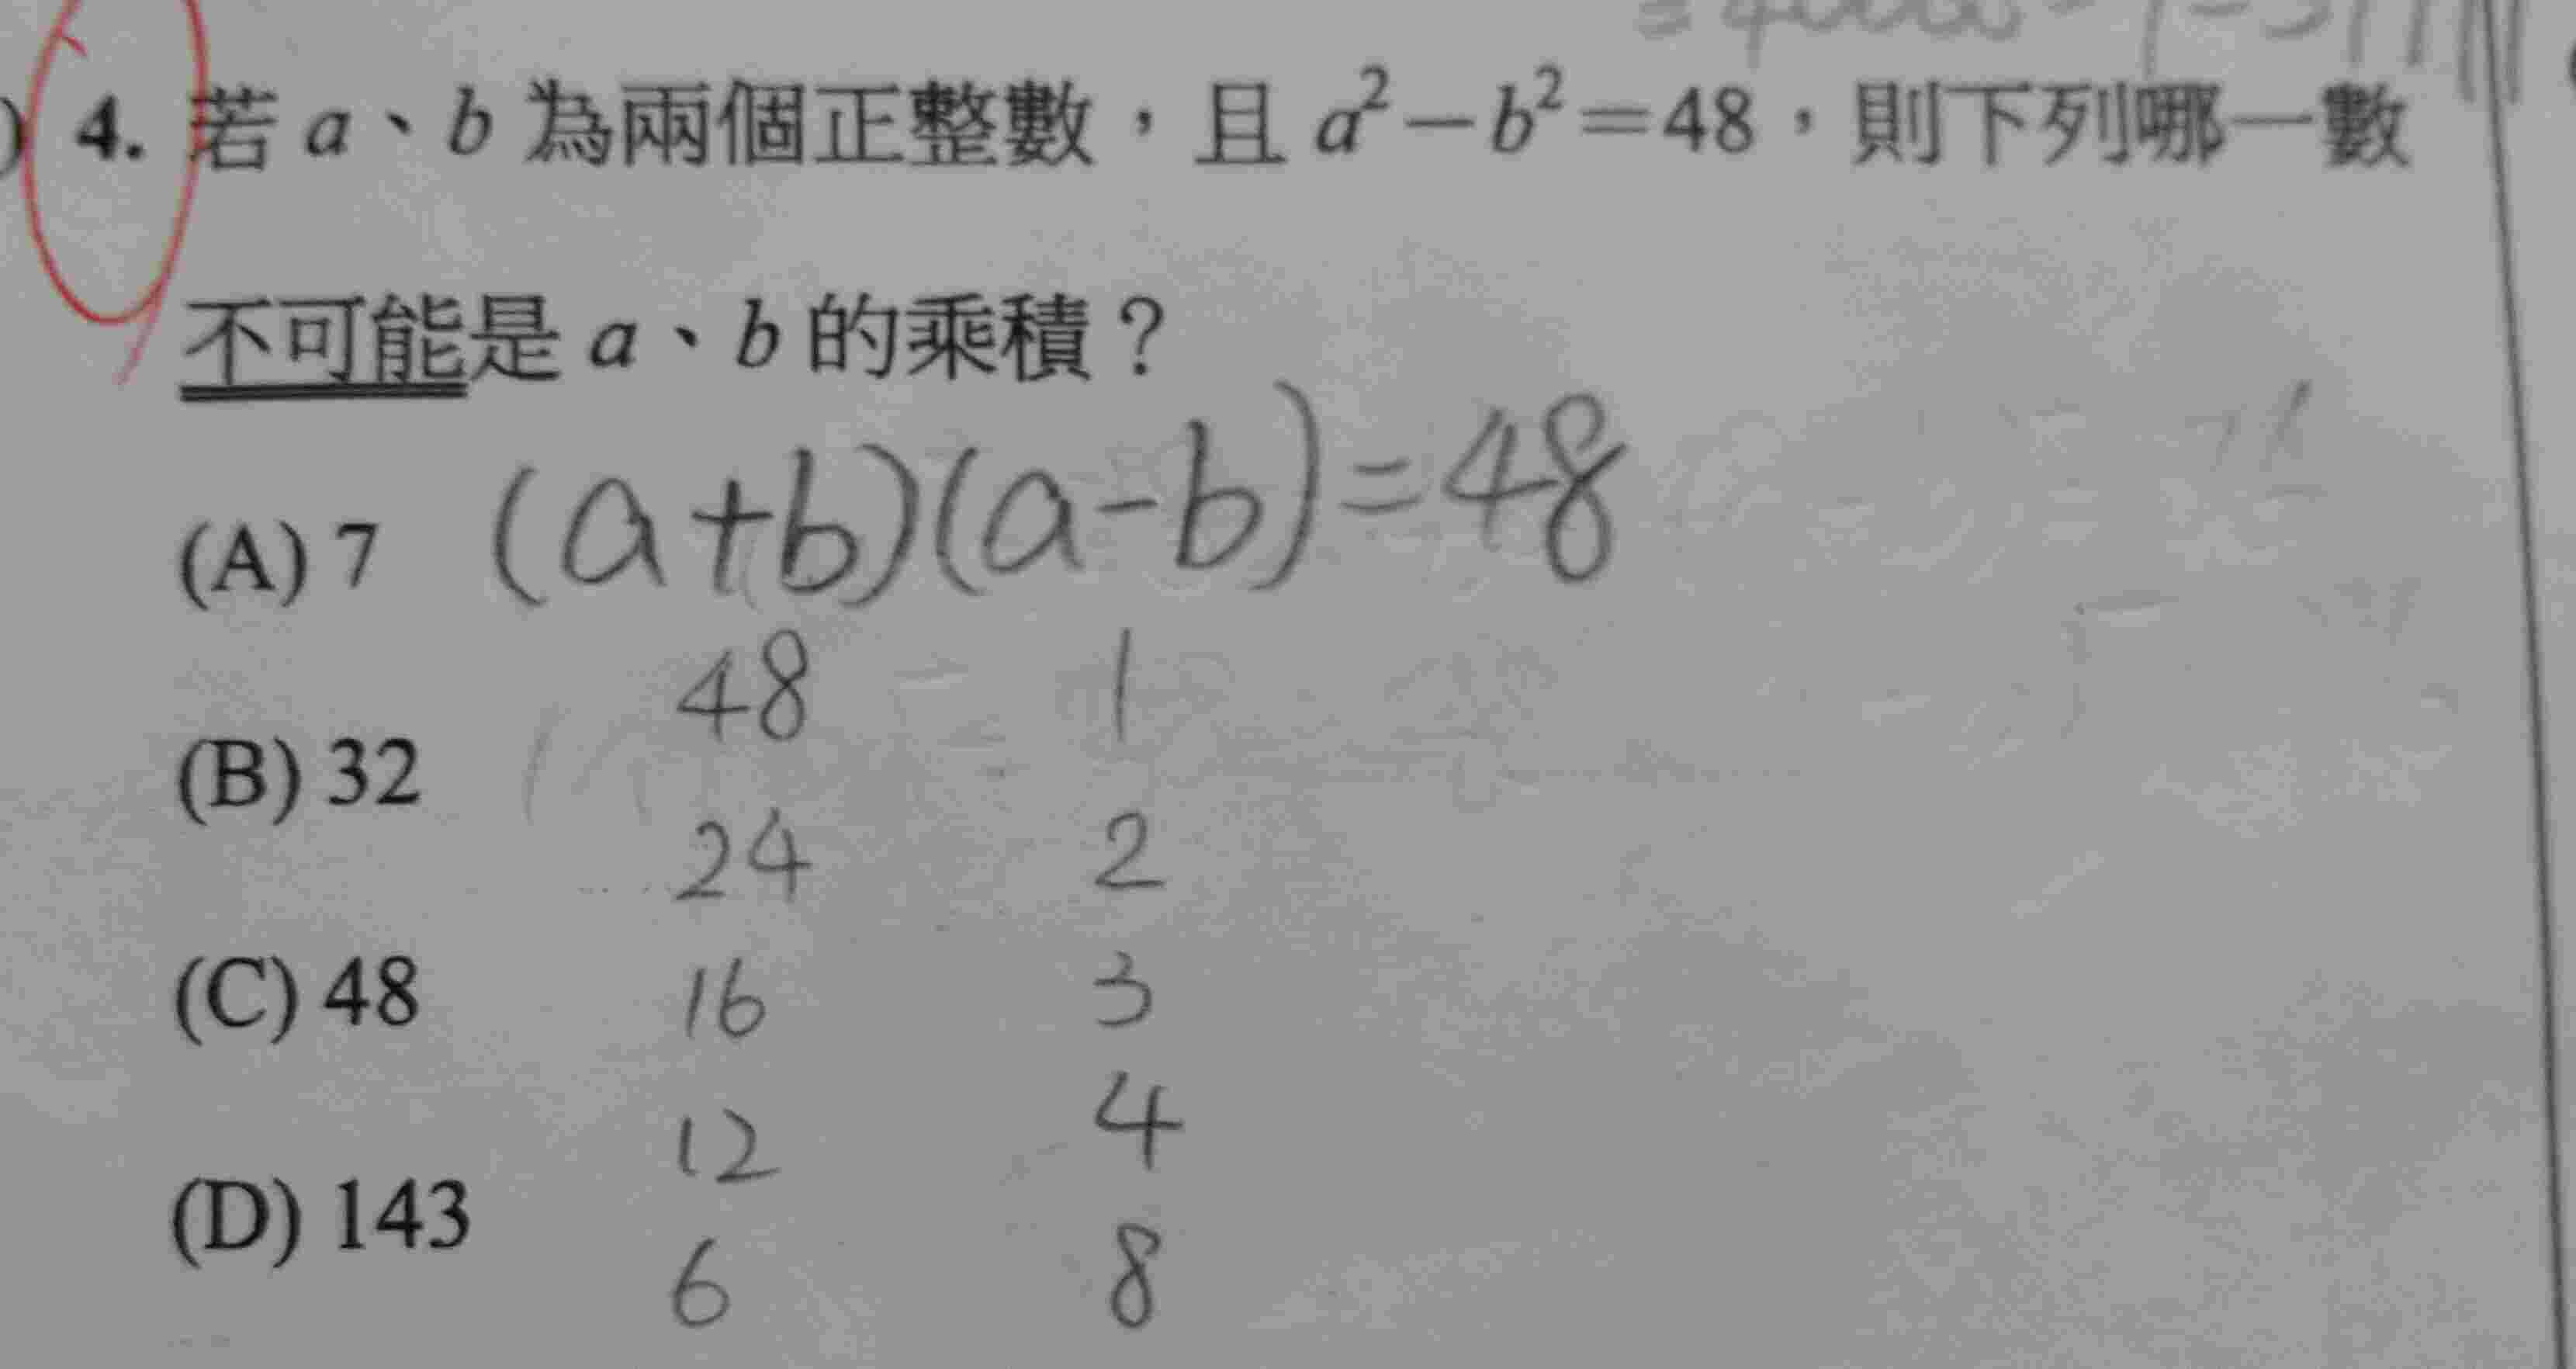 4. 若 a、b 為兩個正整數，且 a²－b²＝48，則下列哪一數
不可能是 a、b 的乘積？
(a+b)(a-b)=48
(A) 7
48 1
(B) 32
24 2
(C) 48
16 3
12 4
(D) 143
6 8